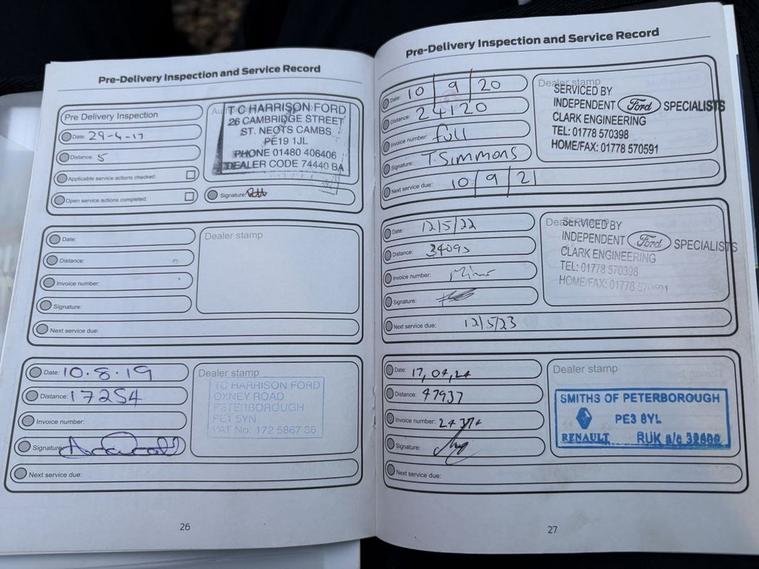 Pre-Delivery Inspection and Service Record
Pre Delivery Inspection
Date: 29-4-17
Distance: 5
Applicable service actions checked:
Open service actions completed:
T C HARRISON FORD
26 CAMBRIDGE STREET
ST. NEOTS CAMBS
PE19 1JL
PHONE 01480 406406
DEALER CODE 74440 BA
Signature:
Date:
Distance:
Invoice number:
Signature:
Next service due:
Dealer stamp
Date: 10.8.19
Distance: 17254
Invoice number:
Signature:
Next service due:
Dealer stamp
TC HARRISON FORD
OXNEY ROAD
PETERBOROUGH
PE1 5YN
VAT No: 172 5867 86
26
Pre-Delivery Inspection and Service Record
Date: 10/9/20
Distance: 24120
Invoice number: full
Signature: T. Simmons
Next service due: 10/9/21
Dealer stamp
SERVICED BY
INDEPENDENT Ford SPECIALISTS
CLARK ENGINEERING
TEL: 01778 570398
HOME/FAX: 01778 570591
Date: 12/5/22
Distance: 34095
Invoice number:
Signature:
Next service due: 12/5/23
SERVICED BY
INDEPENDENT Ford SPECIALISTS
CLARK ENGINEERING
TEL: 01778 570398
HOME/FAX: 01778 570591
Date: 17,04,24
Distance: 47937
Invoice number:
Signature:
Next service due:
Dealer stamp
SMITHS OF PETERBOROUGH
PE3 8YL
RENAULT RUK a/c
27